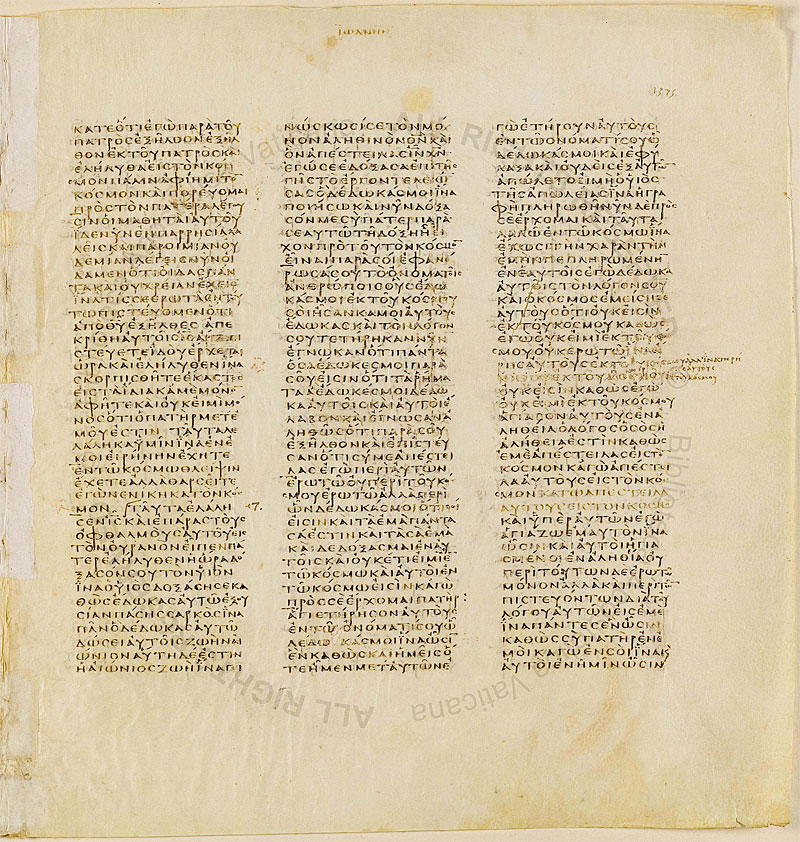 ΙΩΑΝΝΗΝ
1375
ΚΑΤΕΟΤΙΕΓΩΠΑΡΑΤΟΥ
ΠΑΤΡΟϹΕΞΗΛΘΟΝΕΞΗΛ
ΘΟΝΕΚΤΟΥΠΑΤΡΟϹΚΑΙ
ΕΛΗΛΥΘΑΕΙϹΤΟΝΚΟϹ
ΜΟΝΠΑΛΙΝΑΦΙΗΜΙΤΟ
ΚΟϹΜΟΝΚΑΙΠΟΡΕΥΟΜΑΙ
ΠΡΟϹΤΟΝΠΑΤΕΡΑΛΕΓΟΥ
ϹΙΝΟΙΜΑΘΗΤΑΙΑΥΤΟΥ
ΙΔΕΝΥΝΕΝΠΑΡΡΗϹΙΑΛΑ
ΛΕΙϹΚΑΙΠΑΡΟΙΜΙΑΝΟΥ
ΔΕΜΙΑΝΛΕΓΕΙϹΝΥΝΟΙ
ΔΑΜΕΝΟΤΙΟΙΔΑϹΠΑΝ
ΤΑΚΑΙΟΥΧΡΕΙΑΝΕΧΕΙϹ
ΙΝΑΤΙϹϹΕΕΡΩΤΑΕΝΤΟΥ
ΤΩΠΙϹΤΕΥΟΜΕΝΟΤΙ
ΑΠΟΘΥΕΞΗΛΘΕϹ ΑΠΕ
ΚΡΙΘΗΑΥΤΟΙϹΙϹΑΡΤΙΠΙ
ϹΤΕΥΕΤΕΙΔΟΥΕΡΧΕΤΑΙ
ΩΡΑΚΑΙΕΛΗΛΥΘΕΝΙΝΑ
ϹΚΟΡΠΙϹΘΗΤΕΕΚΑϹΤΟϹ
ΕΙϹΤΑΙΔΙΑΚΑΜΕΜΟΝΟ
ΑΦΗΤΕΚΑΙΟΥΚΕΙΜΙΜΟ
ΝΟϹΟΤΙΟΠΑΤΗΡΜΕΤΕ
ΜΟΥΕϹΤΙΝ ΤΑΥΤΑΛΕ
ΛΑΛΗΚΑΥΜΙΝΙΝΑΕΝΕ
ΜΟΙΕΙΡΗΝΗΝΕΧΗΤΕ
ΕΝΤΩΚΟϹΜΩΘΛΕΙΨΙΝ
ΕΧΕΤΕΑΛΛΑΘΑΡϹΕΙΤΕ
ΕΓΩΝΕΝΙΚΗΚΑΤΟΝΚΟϹ
ΜΟΝ ΤΑΥΤΑΕΛΑΛΗ
ϹΕΝΙϹΚΑΙΕΠΑΡΑϹΤΟΥϹ
ΟΦΘΑΛΜΟΥϹΑΥΤΟΥΕΙϹ
ΤΟΝΟΥΡΑΝΟΝΕΙΠΕΝΠΑ
ΤΕΡΕΛΗΛΥΘΕΝΗΩΡΑΔΟ
ΞΑϹΟΝϹΟΥΤΟΝΥΙΟΝ
ΙΝΑΟΥΙΟϹΔΟΞΑϹΗϹΕΚΑ
ΘΩϹΕΔΩΚΑϹΑΥΤΩΕΞΟΥ
ϹΙΑΝΠΑϹΗϹϹΑΡΚΟϹΙΝΑ
ΠΑΝΟΔΕΔΩΚΑϹΑΥΤΩ
ΔΩϹΕΙΑΥΤΟΙϹΖΩΗΝΑΙ
ΩΝΙΟΝΑΥΤΗΔΕΕϹΤΙΝ
ΗΑΙΩΝΙΟϹΖΩΗΙΝΑΓΕΙ
ΝΩϹΚΩϹΙϹΕΤΟΝΜΟ
ΝΟΝΑΛΗΘΙΝΟΝΘΝΚΑΙ
ΟΝΑΠΕϹΤΕΙΛΑϹΙΝΧΝ
ΕΓΩϹΕΕΔΟΞΑϹΑΕΠΙΤΗϹ
ΓΗϹΤΟΕΡΓΟΝΤΕΛΕΙΩ
ϹΑϹΟΔΕΔΩΚΑϹΜΟΙΙΝΑ
ΠΟΙΗϹΩΚΑΙΝΥΝΔΟΞΑ
ϹΟΝΜΕϹΥΠΑΤΕΡΠΑΡΑ
ϹΕΑΥΤΩΤΗΔΟΞΗΗΕΙ
ΧΟΝΠΡΟΤΟΥΤΟΝΚΟϹΜΟ
ΕΙΝΑΙΠΑΡΑϹΟΙΕΦΑΝΕ
ΡΩϹΑϹΟΥΤΟΟΝΟΜΑΤΟΙϹ
ΑΝΘΡΩΠΟΙϹΟΥϹΕΔΩ
ΚΑϹΜΟΙΕΚΤΟΥΚΟϹΜΟΥ
ϹΟΙΗϹΑΝΚΑΜΟΙΑΥΤΟΥϹ
ΕΔΩΚΑϹΚΑΙΤΟΝΛΟΓΟΝ
ϹΟΥΤΕΤΗΡΗΚΑΝΝΥΝ
ΕΓΝΩΚΑΝΟΤΙΠΑΝΤΑ
ΟϹΑΕΔΩΚΑϹΜΟΙΠΑΡΑ
ϹΟΥΕΙϹΙΝΟΤΙΤΑΡΗΜΑ
ΤΑΑΕΔΩΚΑϹΜΟΙΔΕΔΩ
ΚΑΑΥΤΟΙϹΚΑΙΑΥΤΟΙΕ
ΛΑΒΟΝΚΑΙΕΓΝΩϹΑΝΑ
ΛΗΘΩϹΟΤΙΠΑΡΑϹΟΥ
ΕΞΗΛΘΟΝΚΑΙΕΠΙϹΤΕΥ
ϹΑΝΟΤΙϹΥΜΕΑΠΕϹΤΕΙ
ΛΑϹΕΓΩΠΕΡΙΑΥΤΩΝ
ΕΡΩΤΩΟΥΠΕΡΙΤΟΥΚΟ
ϹΜΟΥΕΡΩΤΩΑΛΛΑΠΕΡΙ
ΩΝΔΕΔΩΚΑϹΜΟΙΟΤΙϹΟΙ
ΕΙϹΙΝΚΑΙΤΑΕΜΑΠΑΝΤΑ
ϹΑΕϹΤΙΝΚΑΙΤΑϹΑΕΜΑ
ΚΑΙΔΕΔΟΞΑϹΜΑΙΕΝΑΥ
ΤΟΙϹΚΑΙΟΥΚΕΤΙΕΙΜΙΕ
ΤΩΚΟϹΜΩΚΑΙΑΥΤΟΙΕΝ
ΤΩΚΟϹΜΩΕΙϹΙΝΚΑΓΩ
ΠΡΟϹϹΕΕΡΧΟΜΑΙΠΑΤΗΡ
ΑΓΙΕΤΗΡΗϹΟΝΑΥΤΟΥϹ
ΕΝΤΩΟΝΟΜΑΤΙϹΟΥΩ
ΔΕΔΩΚΑϹΜΟΙΙΝΑΩϹΙ
ΕΝΚΑΘΩϹΚΑΙΗΜΕΙϹΟ
ΤΕΗΜΗΝΜΕΤΑΥΤΩΝΕ
ΓΩΕΤΗΡΟΥΝΑΥΤΟΥϹΕ
ΤΩΟΝΟΜΑΤΙϹΟΥΩ
ΔΕΔΩΚΑϹΜΟΙΚΑΙΕΦΥ
ΛΑΞΑΚΑΙΟΥΔΕΙϹΕΞΑΥΤΩ
ΑΠΩΛΕΤΟΕΙΜΗΟΥΙΟϹ
ΤΗϹΑΠΩΛΕΙΑϹΙΝΑΗΓΡΑ
ΦΗΠΛΗΡΩΘΗΝΥΝΔΕΠΡΟϹ
ϹΕΕΡΧΟΜΑΙΚΑΙΤΑΥΤΑ
ΛΑΛΩΕΝΤΩΚΟϹΜΩΙΝΑ
ΕΧΩϹΙΤΗΝΧΑΡΑΝΤΗΝ
ΕΜΗΝΠΕΠΛΗΡΩΜΕΝΗ
ΕΝΕΑΥΤΟΙϹΕΓΩΔΕΔΩΚΑ
ΑΥΤΟΙϹΤΟΝΛΟΓΟΝϹΟΥ
ΚΑΙΟΚΟϹΜΟϹΕΜΕΙϹΗϹΕ
ΑΥΤΟΥϹΟΤΙΟΥΚΕΙϹΙΝ
ΕΚΤΟΥΚΟϹΜΟΥΚΑΘΩϹ
ΕΓΩΟΥΚΕΙΜΙΕΚΤΟΥΚΟϹ
ΜΟΥΟΥΚΕΡΩΤΩΙΝΑ
ΡΗϹΑΥΤΟΥϹΕΚΤΟΥ
ΟΥΚΕΙϹΙΝΚΑΘΩϹΕΓΩ
ΟΥΚΕΙΜΙΕΚΤΟΥΚΟϹΜΟΥ
ΑΓΙΑϹΟΝΑΥΤΟΥϹΕΝΑ
ΛΗΘΕΙΑΟΛΟΓΟϹΟϹΟϹΗ
ΑΛΗΘΕΙΑΕϹΤΙΝΚΑΘΩϹ
ΕΜΕΑΠΕϹΤΕΙΛΑϹΕΙϹΤΟ
ΚΟϹΜΟΝΚΑΓΩΑΠΕϹΤΕΙ
ΛΑΑΥΤΟΥϹΕΙϹΤΟΝΚΟ
ϹΜΟΝΚΑΓΩΑΠΕϹΤΕΙΛΑ
ΑΥΤΟΥϹΕΙϹΤΟΝΚΟϹΜΟ
ΚΑΙΥΠΕΡΑΥΤΩΝΕΓΩ
ΑΓΙΑΖΩΕΜΑΥΤΟΝΙΝΑ
ΩϹΙΝΚΑΙΑΥΤΟΙΗΓΙΑ
ϹΜΕΝΟΙΕΝΑΛΗΘΙΑΟΥ
ΠΕΡΙΤΟΥΤΩΝΔΕΕΡΩΤΩ
ΜΟΝΟΝΑΛΛΑΚΑΙΠΕΡΙΤΩ
ΠΙϹΤΕΥΟΝΤΩΝΔΙΑΤΟΥ
ΛΟΓΟΥΑΥΤΩΝΕΙϹΕΜΕ
ΙΝΑΠΑΝΤΕϹΕΝΩϹΙΝ
ΚΑΘΩϹϹΥΠΑΤΗΡΕΝΕ
ΜΟΙΚΑΓΩΕΝϹΟΙΙΝΑΚΑΙ
ΑΥΤΟΙΕΝΗΜΙΝΩϹΙΝ